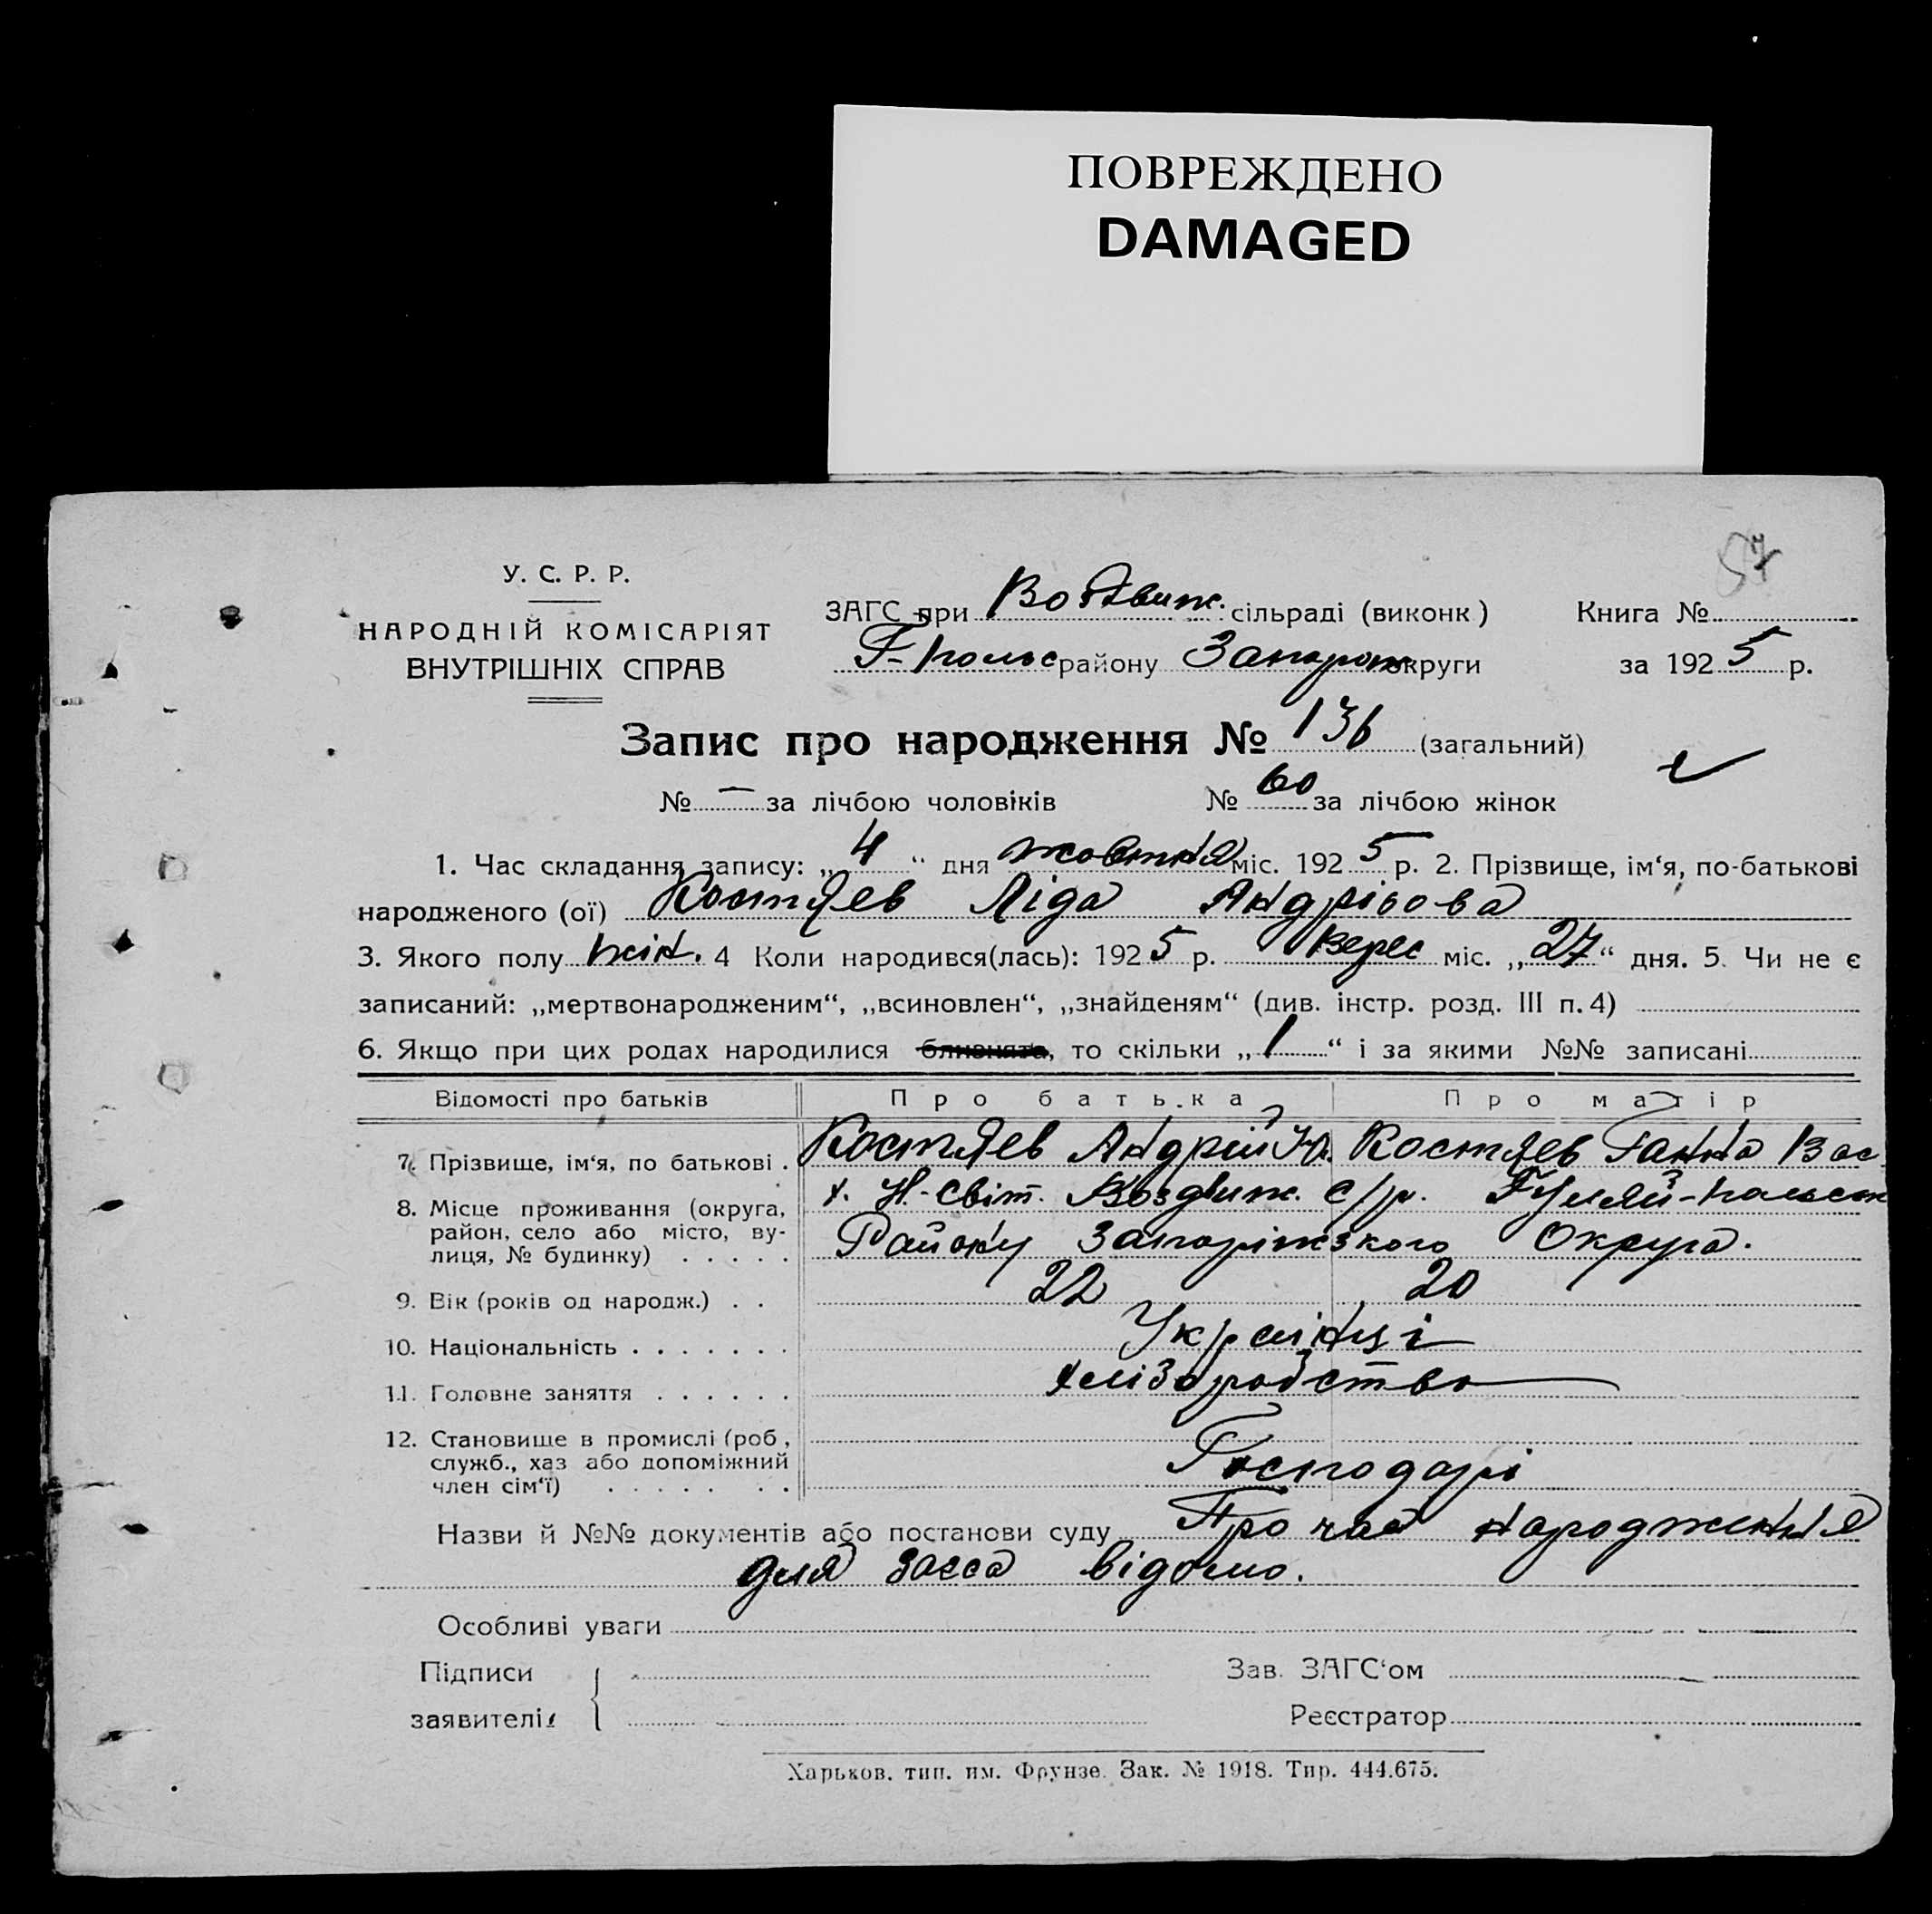 ПОВРЕЖДЕНО
DAMAGED
57
У. С. Р. Р.
НАРОДНІЙ КОМІСАРІЯТ
ВНУТРІШНІХ СПРАВ
ЗАГС при Воздвиж. сільраді (виконк) Книга №
Г-Польс району Запорож округи за 1925 р.
Запис про народження № 136 (загальний)
№ — за лічбою чоловіків № 60 за лічбою жінок
1. Час складання запису: „4“ дня жовтня міс. 1925 р. 2. Прізвище, ім‘я, по-батькові
народженого (ої) Костяев Ліда Андрівова
3. Якого полу жін. 4 Коли народився(лась): 1925 р. Верес міс. „27“ дня. 5. Чи не є
записаний: „мертвонародженим“, „всиновлен“, „знайденям“ (див. інстр. розд. III п. 4)
6. Якщо при цих родах народилися близнята, то скільки „1“ і за якими №№ записані
Відомості про батьків Про батька Про матір
7. Прізвище, ім‘я, по батькові . Костяев Андрій Костяев Ганна Вас
8. Місце проживання (округа, х. Н.-Світ. Воздвиж. с/р. Гуляй-Польск
район, село або місто, ву- Району Запоріжзкого Округа.
лиця, № будинку) . . . . .
9. Вік (років од народж.) . . 22 20
10. Національність . . . . . . . Українці
11. Головне заняття . . . . . . хлізородство
12. Становище в промислі (роб.,
служб., хаз або допоміжний Господарі
член сім‘ї) . . . . . . .
Назви й №№ документів або постанови суду Про час народження
для загса відомо.
Особливі уваги
Підписи Зав. ЗАГС‘ом
заявителів Реєстратор
Харьков. тип. им. Фрунзе. Зак. № 1918. Тир. 444.675.